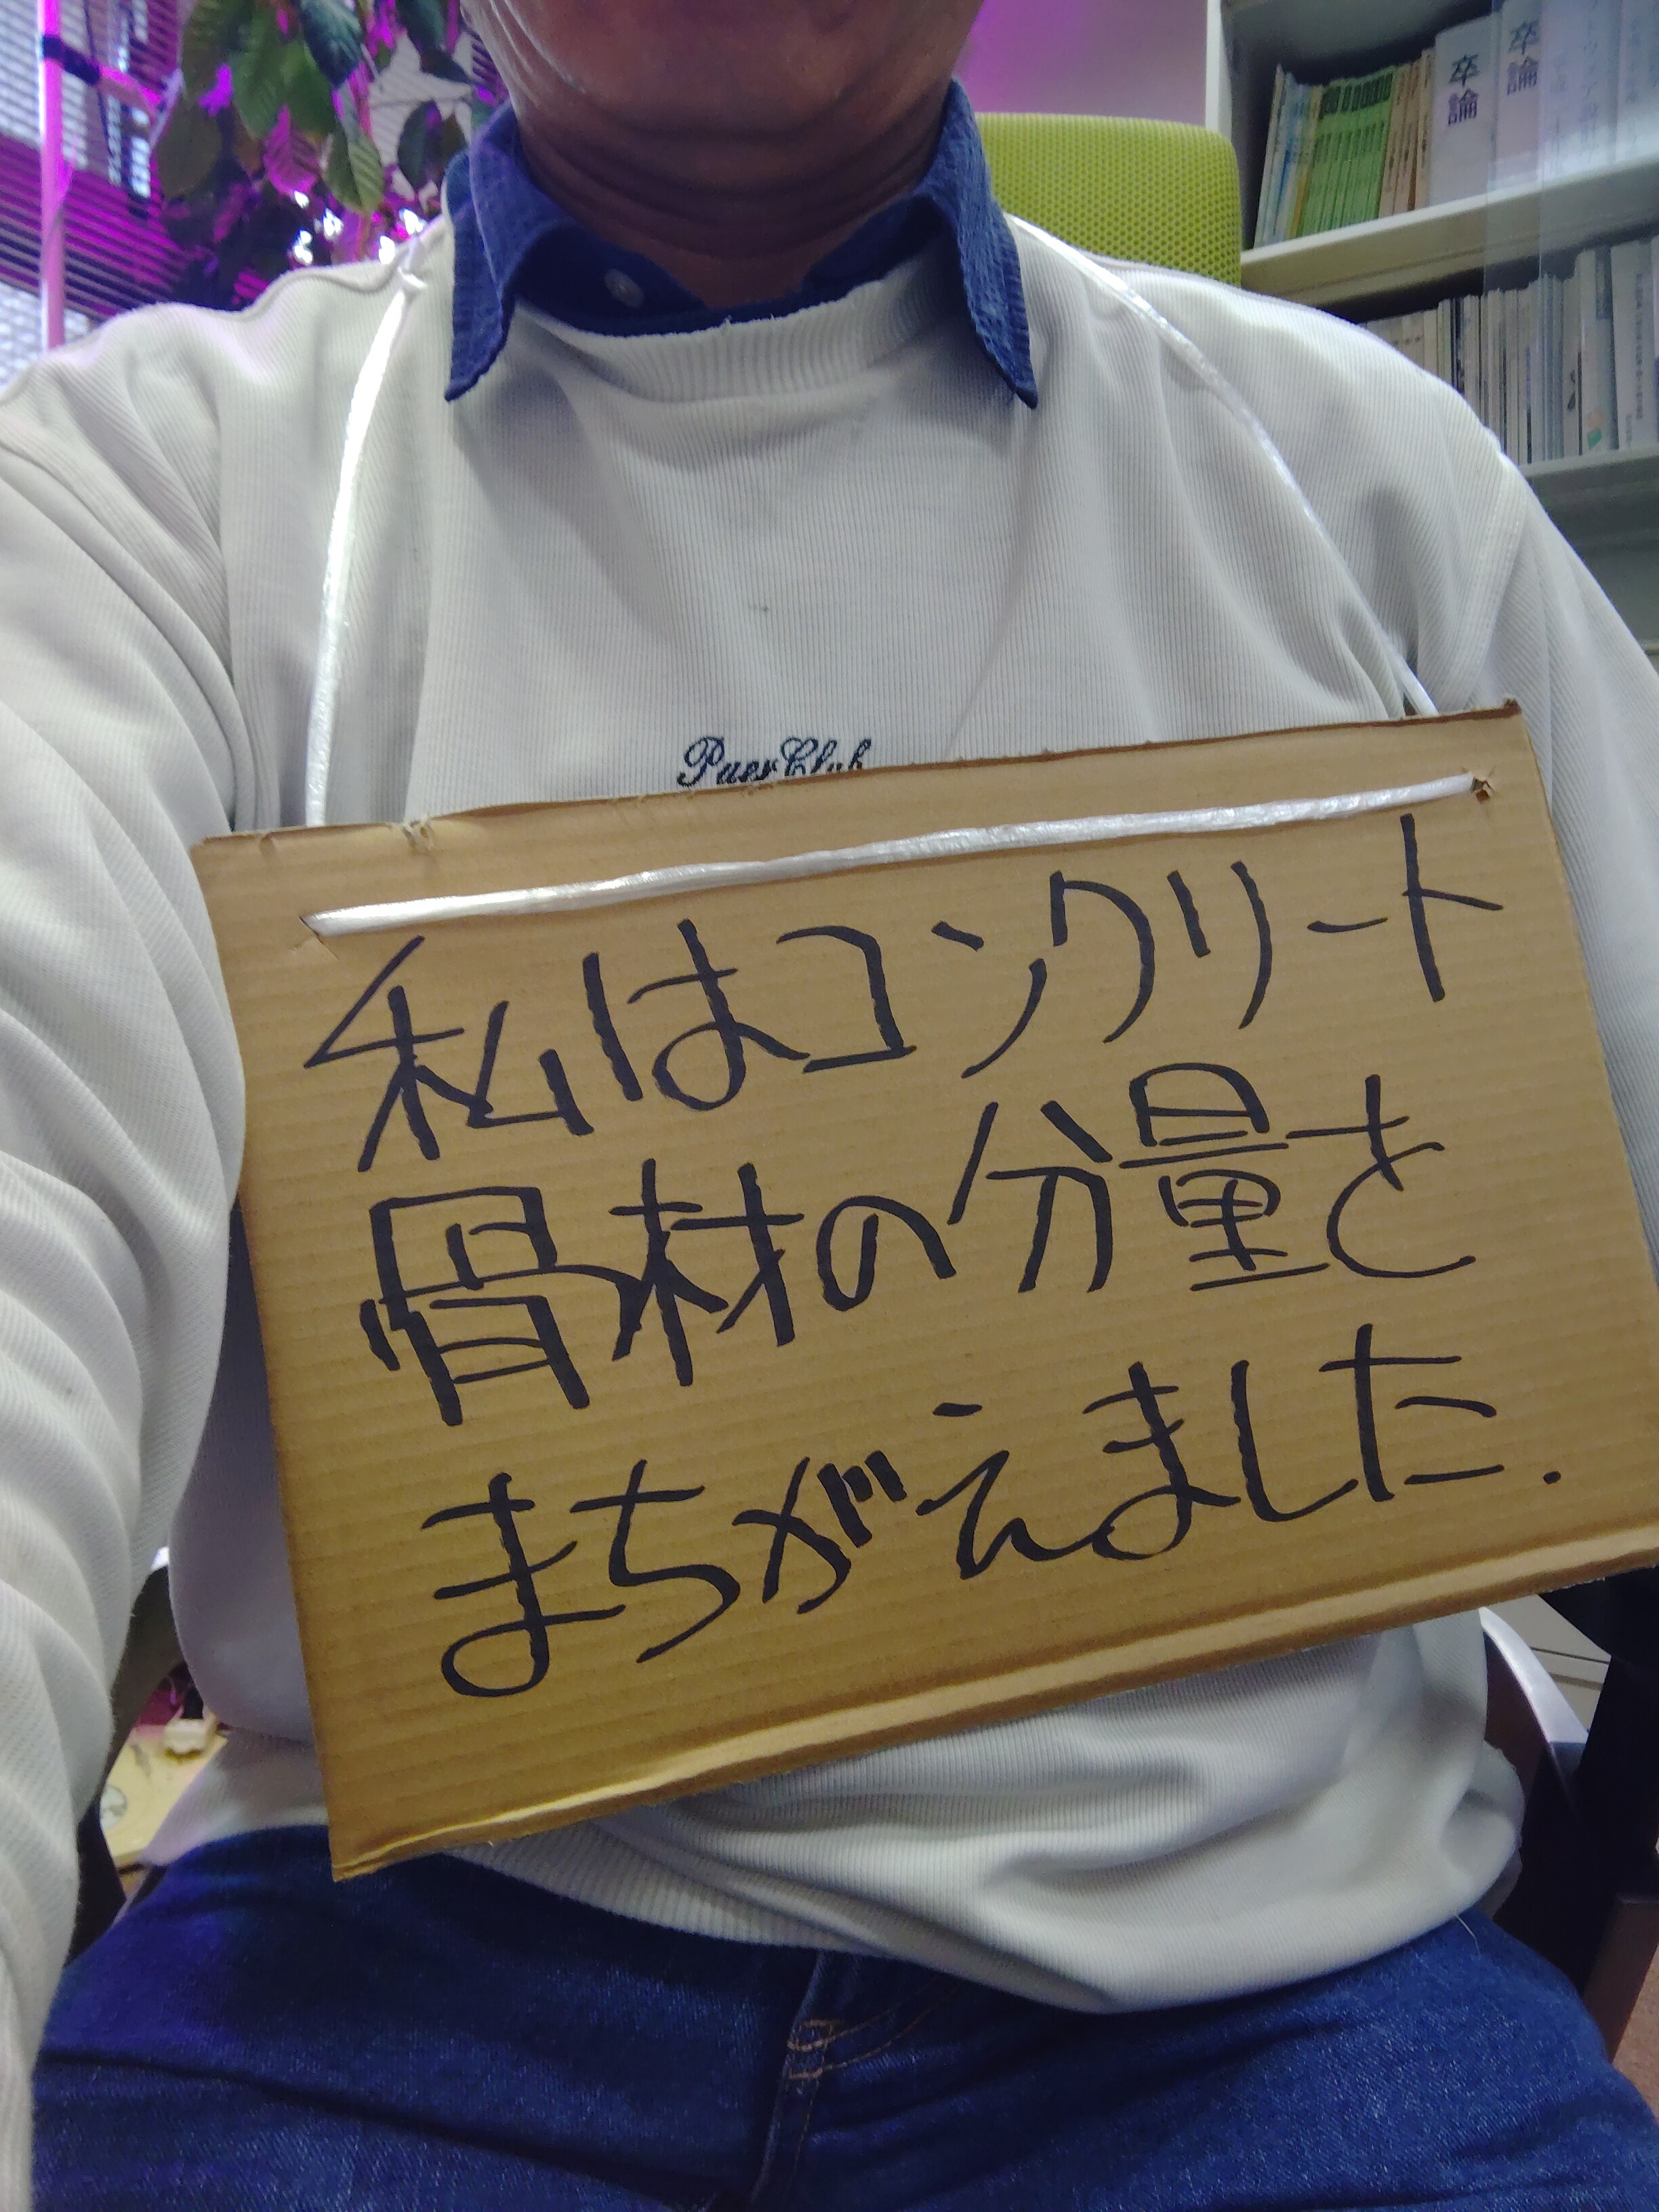 卒論
卒論
Puer Club
私はコンクリート
骨材の分量を
まちがえました.